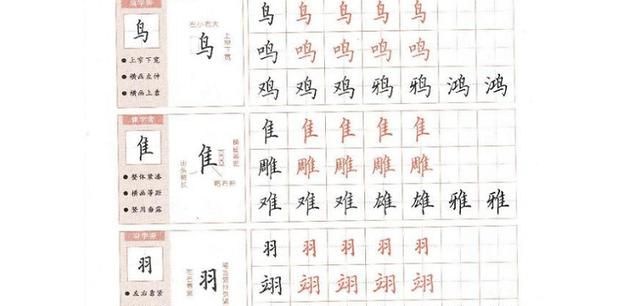 鸟字旁
鸟
左小右大
鸟
上窄下宽
● 上窄下宽
● 横画左伸
● 横画上靠
鸟 鸟 鸟 鸟 鸟
鸣 鸣 鸣 鸣 鸣
鸡 鸡 鸡 鸦 鸦 鸿 鸿
隹字旁
隹
隹
横画等距
● 整体紧凑
● 横画等距
● 竖用垂露
隹 隹 隹 隹 隹
雕 雕 雕 雕 雕
难 难 难 雄 雄 雅 雅
羽字旁
羽
羽
左右靠紧
● 左右靠紧
羽 羽 羽 羽 羽
翊 翊 翊 翊 翊